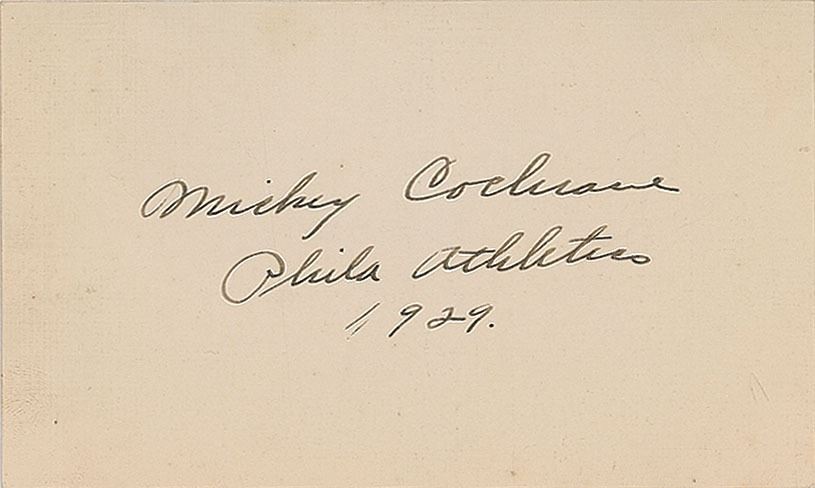 Mickey Cochrane
Phila Athletics
1929.